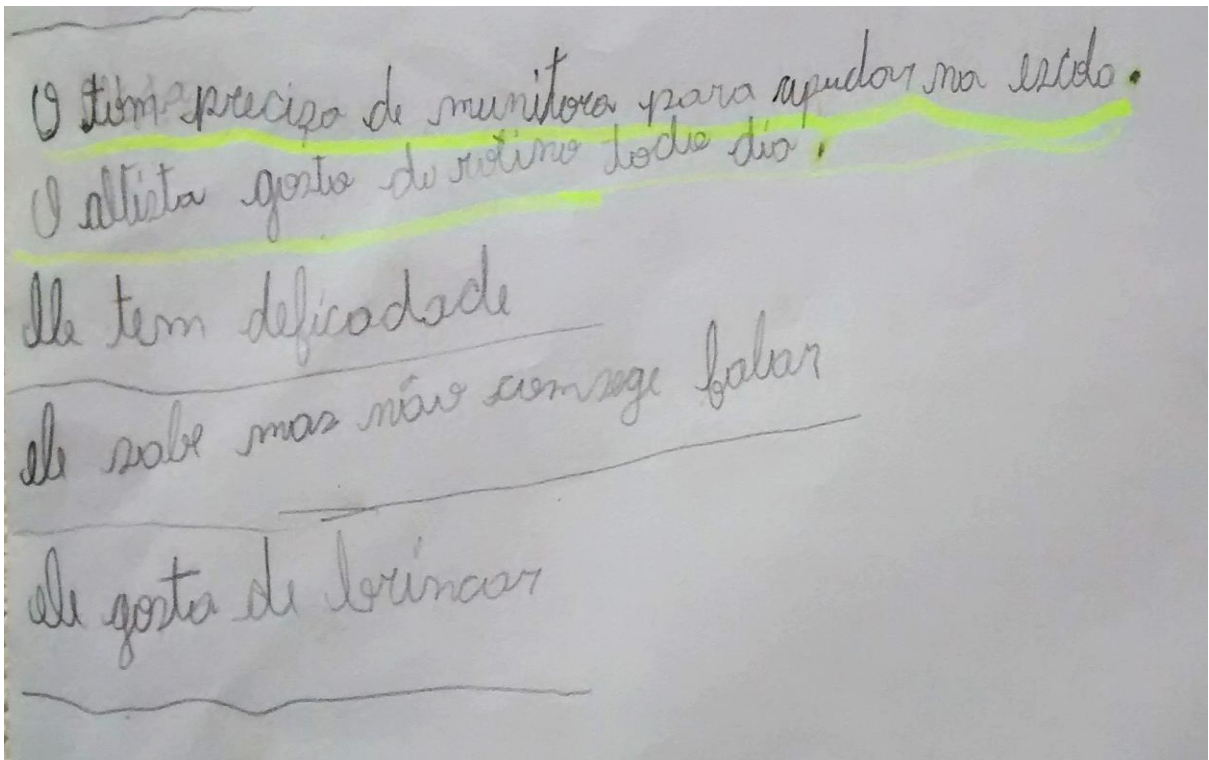 O tim precizo de munitora para apudar na escola.
O altista gosta de rotina todo dia.
ele tem deficadade
ele sabe mas não comsege falar
ele gosta de brincar